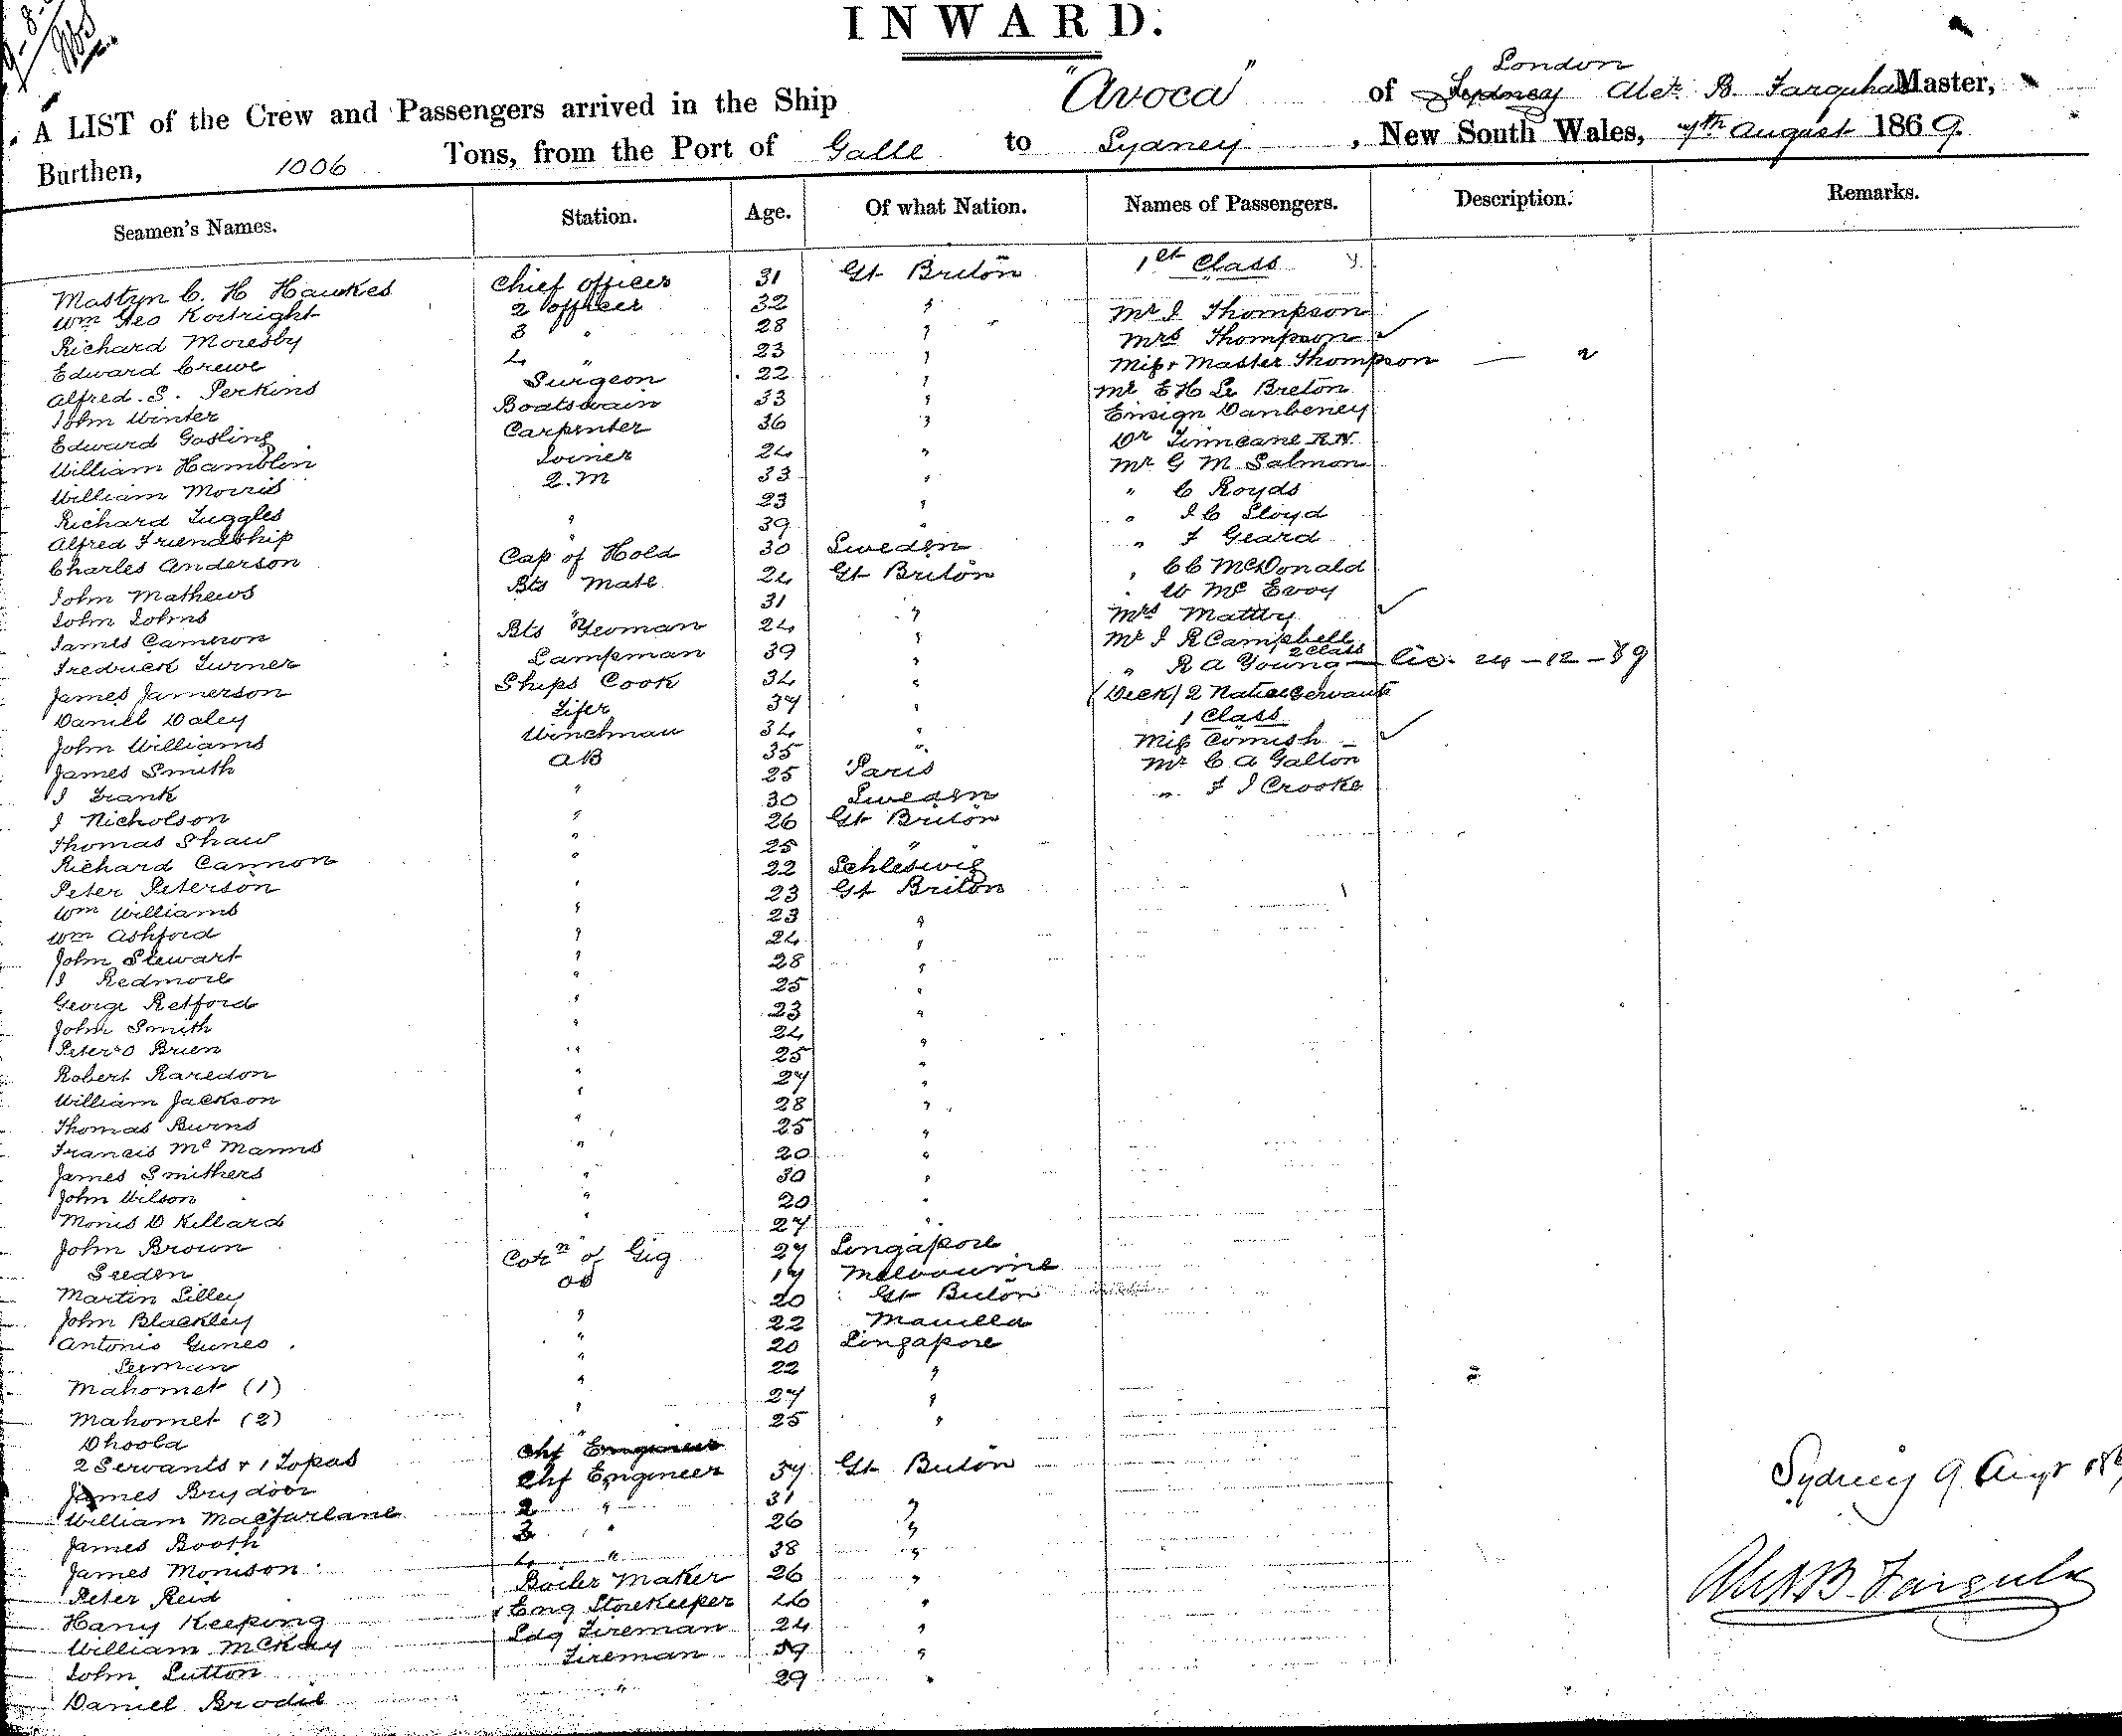 INWARD.
A LIST of the Crew and Passengers arrived in the Ship "Avoca" of Sydney London Alex. B. Farquhar Master,
Burthen, 1006 Tons, from the Port of Galle to Sydney, New South Wales, 7th August 1869.
Seamen's Names. Station. Age. Of what Nation. Names of Passengers. Description. Remarks.
1st Class
Mastyn C. H Hawkes Chief officer 31 Gt Briton
Wm Geo Kortright 2 officer 32 " Mr J Thompson
Richard Moresby 3 " 28 " Mrs Thompson
Edward Crewe 4 " 23 " Miss & Master Thompson
Alfred. S. Perkins Surgeon 22 " Mr E H Le Breton
John Winter Boatswain 33 " Ensign Danbeney
Edward Gosling Carpenter 36 " Dr Finneane R.N.
William Hamblin Joiner 24 " Mr G M Salmon
William Morris Q.M 33 " " C Royds
Richard Tuggles 23 " " J C Lloyd
Alfred Friendship " 39 " " F Geard
Charles Anderson Cap of Hold 30 Sweden " C C McDonald
John Mathews Bts Mate 24 Gt Briton " W Mc Evoy
John Johns " 31 " Mrs Mattry
James Cameron Bts Yeoman 24 " Mr J R Campbell
2 Class
Fredrick Turner Lampman 39 " " R A Young 24-12-39
James Jamerson Ships Cook 34 " (Deck) 2 Native Servants
Daniel Daley Fifer 37 " 1 Class
John Williams Winchman 34 " Miss Cornish
James Smith AB 35 " Mr C A Galton
J Frank " 25 Paris " F J Crooke
J Nicholson " 30 Sweden
Thomas Shaw " 26 Gt Briton
Richard Cannon " 25 "
Peter Peterson " 22 Schleswig
Wm Williams " 23 Gt Briton
Wm Ashford " 23 "
John Stewart " 24 "
J Redmore " 28 "
George Retford " 25 "
John Smith " 23 "
Peter O Brien " 24 "
Robert Raredon " 25 "
William Jackson " 27 "
Thomas Burns " 28 "
Francis Mc Manus " 25 "
James Smithers " 20 "
John Wilson " 30 "
Morris D Killard " 20 "
John Brown " 27 "
Seeden Coxn of Gig 27 Singapore
Martin Lilley OS 17 Melbourne
John Blackley " 20 Gt Briton
Antonio Gunes " 22 Manilla
Seeman " 20 Singapore
Mahomet (1) " 22 "
Mahomet (2) " 27 "
Dhoola " 25 "
2 Servants & 1 Topas Chf Engineer
James Brydoor Chf Engineer 37 Gt Briton
William Macfarlane 2 " 31 "
James Booth 3 " 26 "
James Morrison 4 " 38 "
Peter Reid Boiler Maker 26 "
Harry Keeping Eng Storekeeper 46 "
William McKay Ldg Fireman 24 "
John Sutton Fireman 39 "
Daniel Brodie " 29 "
Sydney 9 Augt 186
Alex B. Farquhar